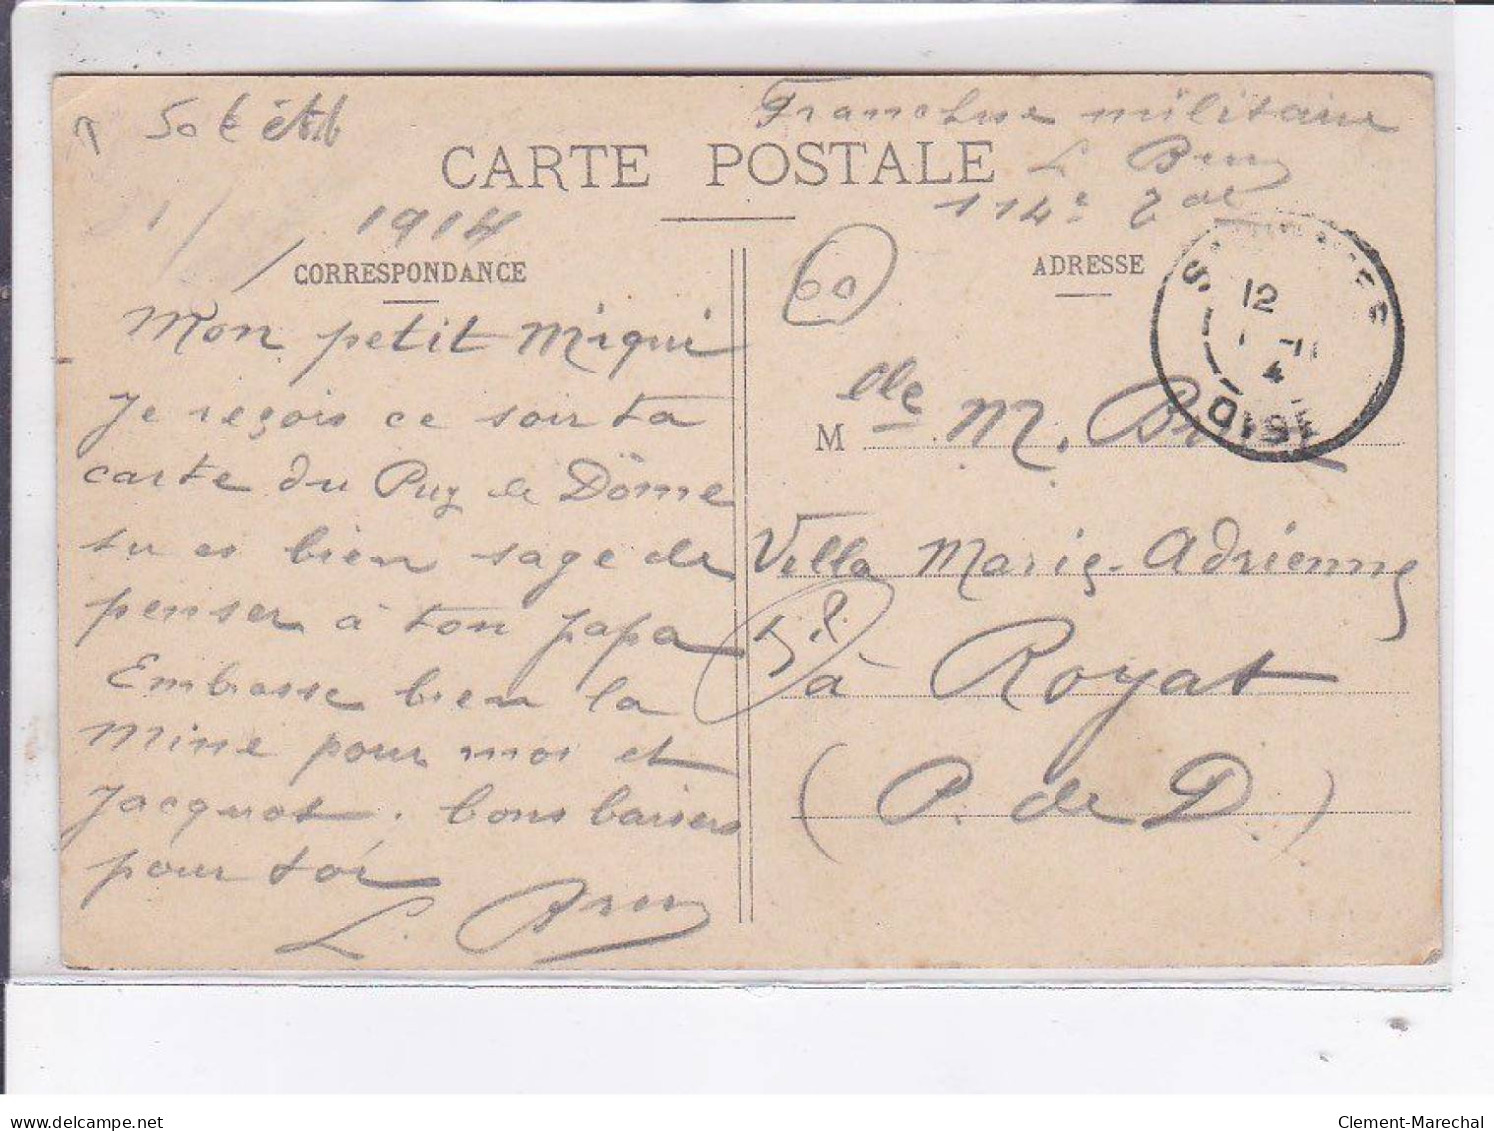 Franchise militaire
L Brun
114e
CARTE POSTALE
1914
CORRESPONDANCE
ADRESSE
60
12
4
OISE
Mon petit Miqui
Je reçois ce soir ta
carte du Puy de Dôme
tu es bien sage de
penser à ton papa
Embrasse bien la
mine pour moi et
Jacquot. bons baisers
pour toi
L. Brun
Mlle M. Brun
Villa Marie-Adrienne
à Royat
(P. de D.)
delcampe.net
Clement-Marechal